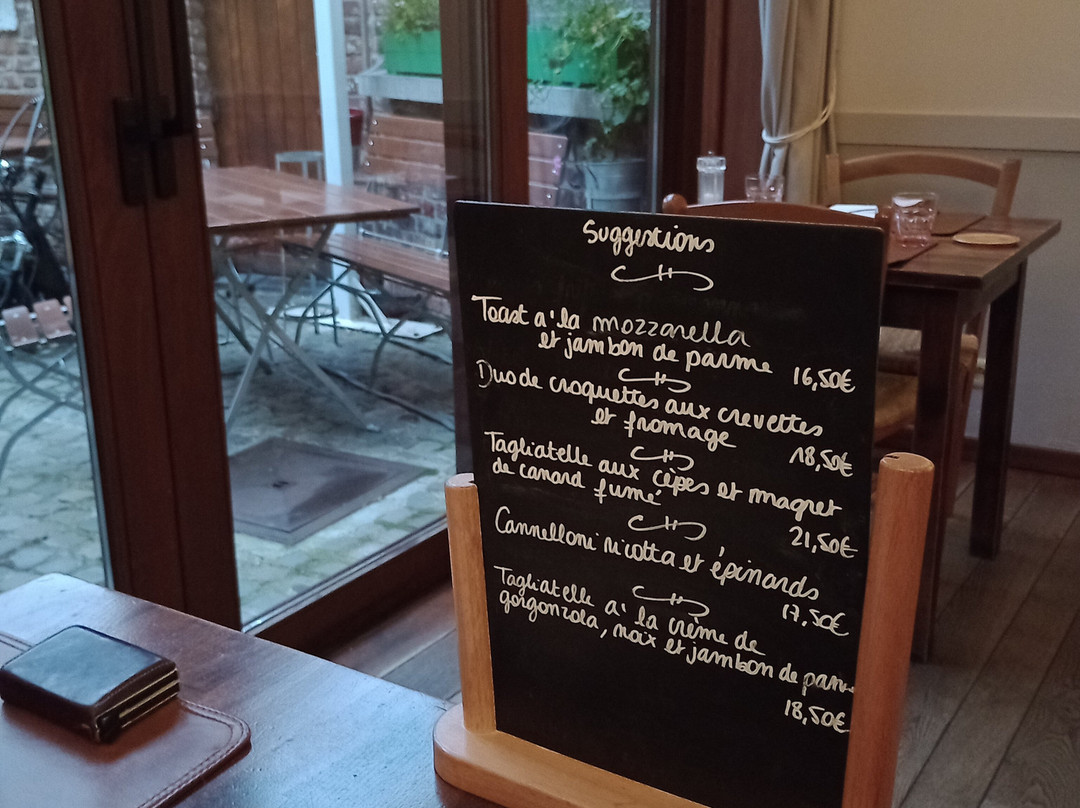 Suggestions
Toast a' la mozzarella
et jambon de parme 16,50€
Duo de croquettes aux crevettes
et fromage
18,50€
Tagliatelle aux cèpes et magret
de canard fumé
21,50€
Cannelloni ricotta et épinards
17,50€
Tagliatelle a' la crème de
gorgonzola, noix et jambon de parm
18,50€